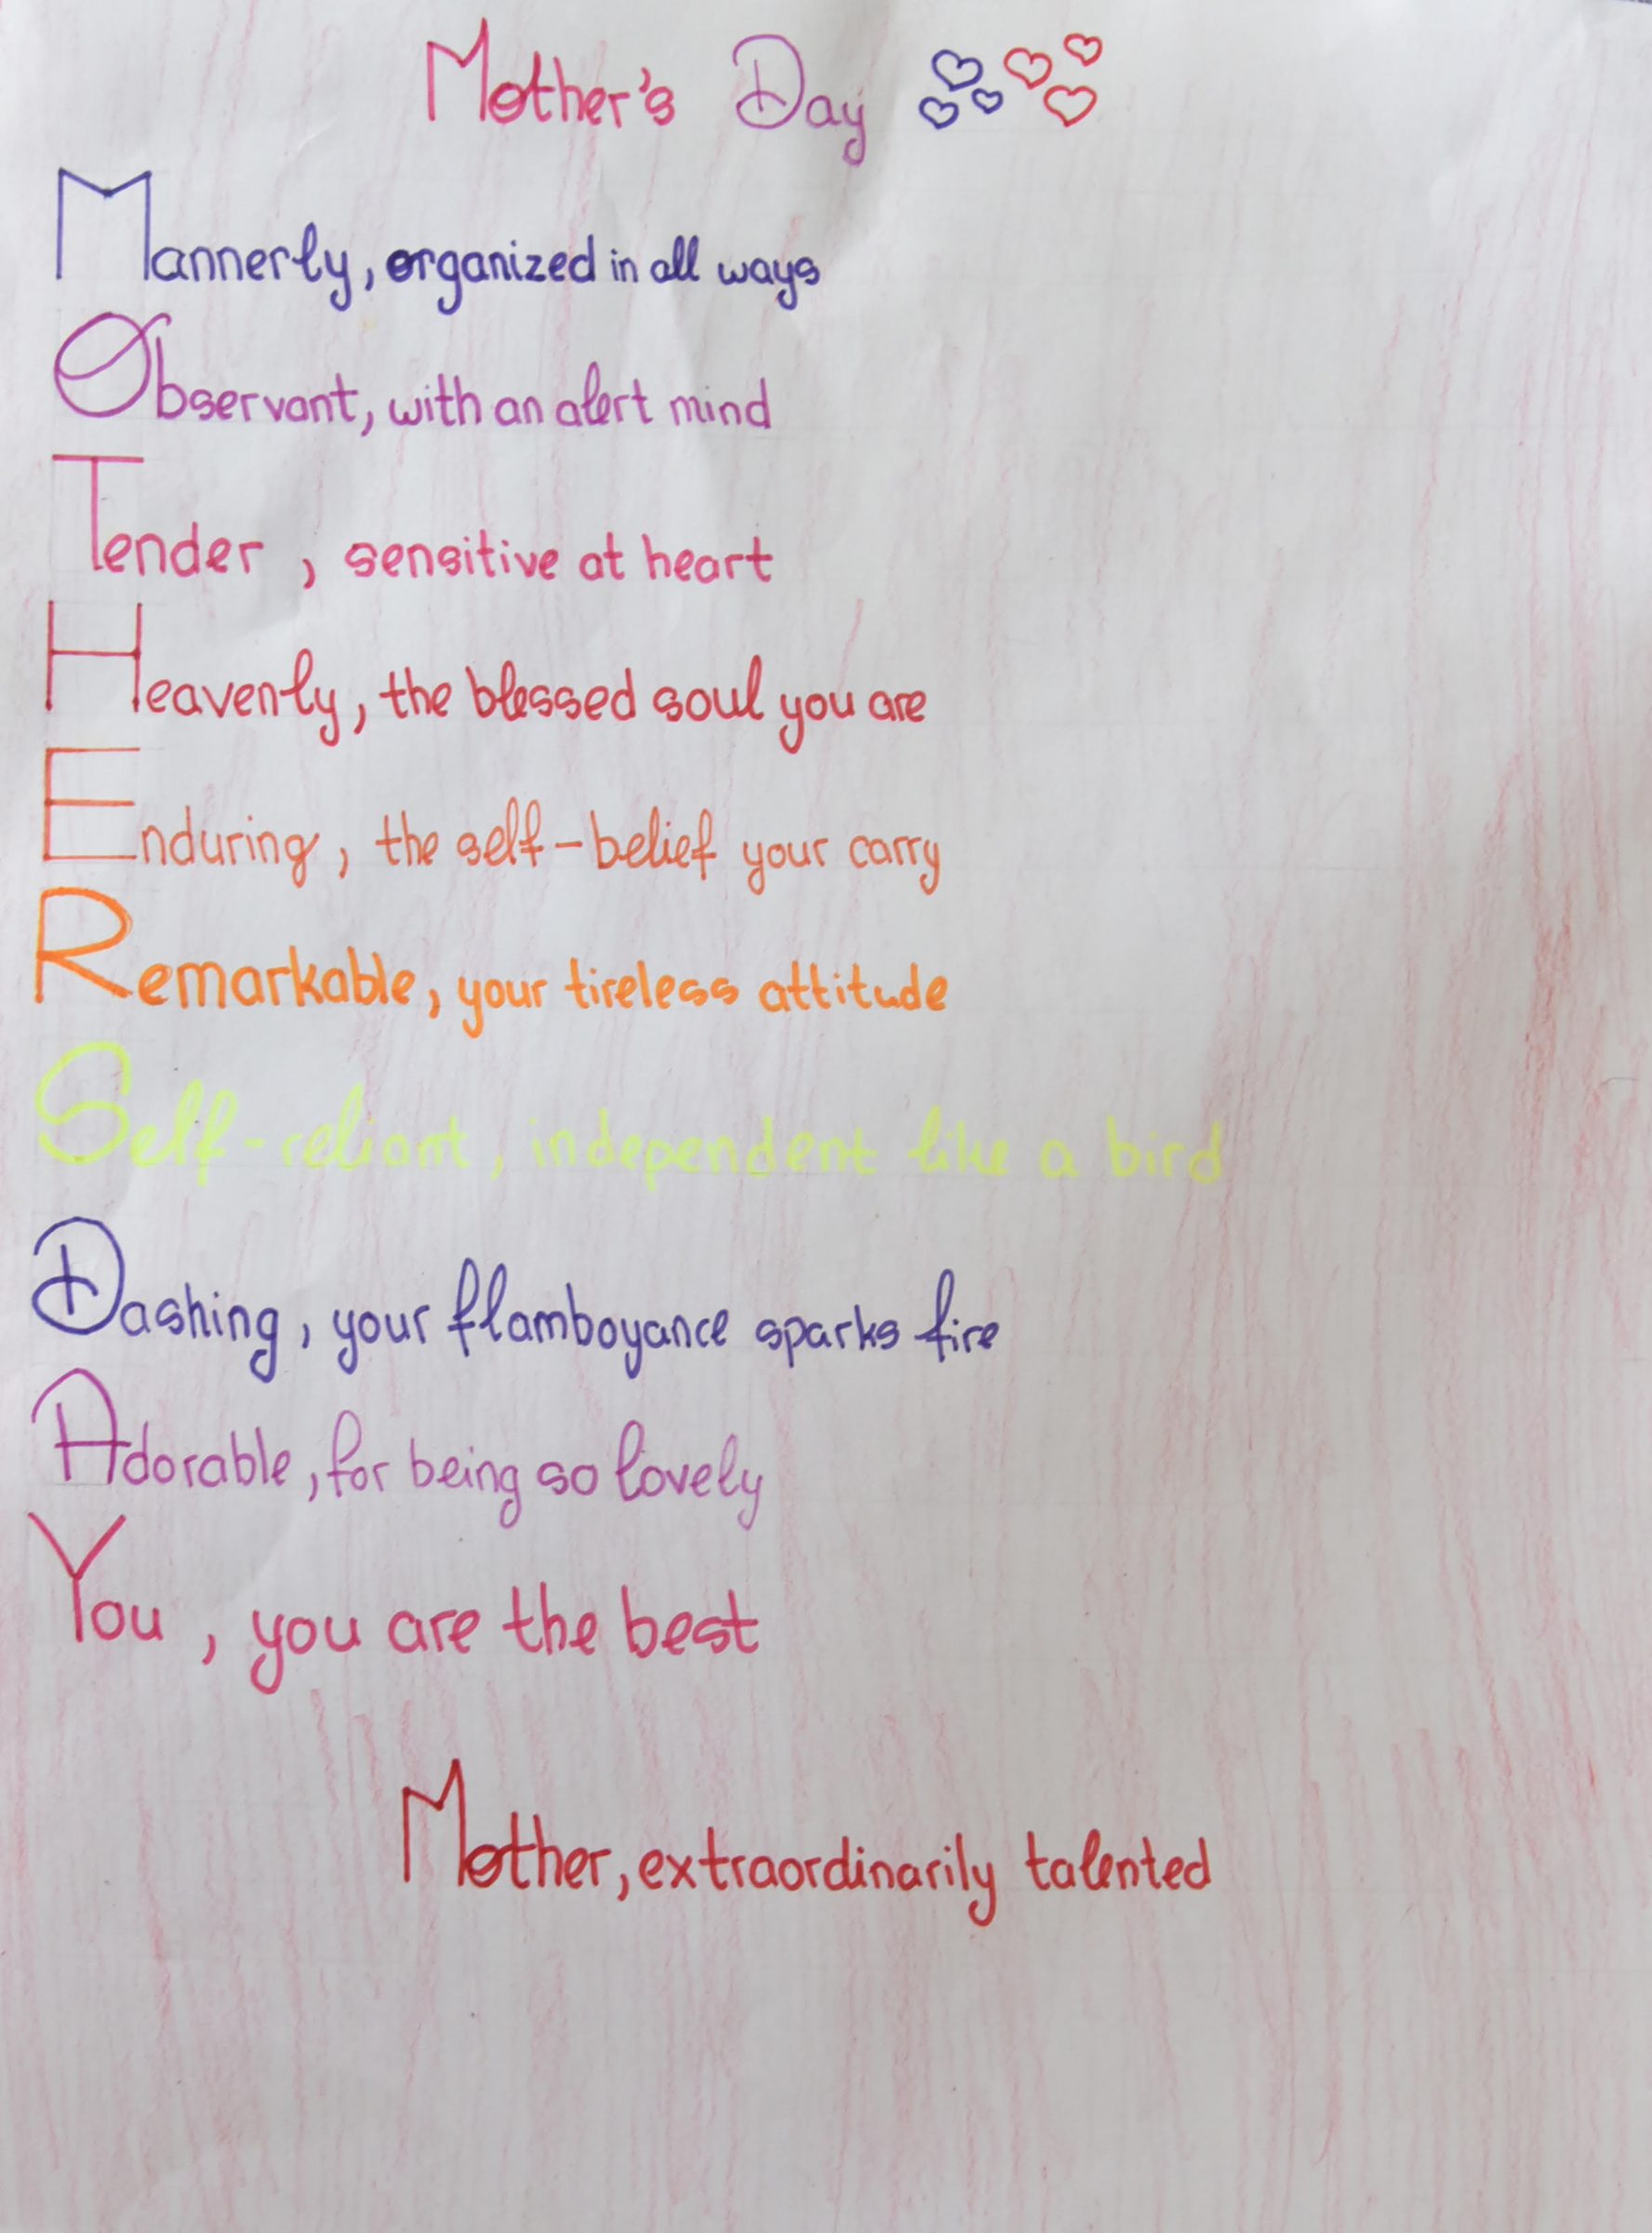 Mother's Day
Mannerly, organized in all ways
Observant, with an alert mind
Tender, sensitive at heart
Heavenly, the blessed soul you are
Enduring, the self-belief your carry
Remarkable, your tireless attitude
Self-reliant, independent like a bird
Dashing, your flamboyance sparks fire
Adorable, for being so lovely
You, you are the best
Mother, extraordinarily talented